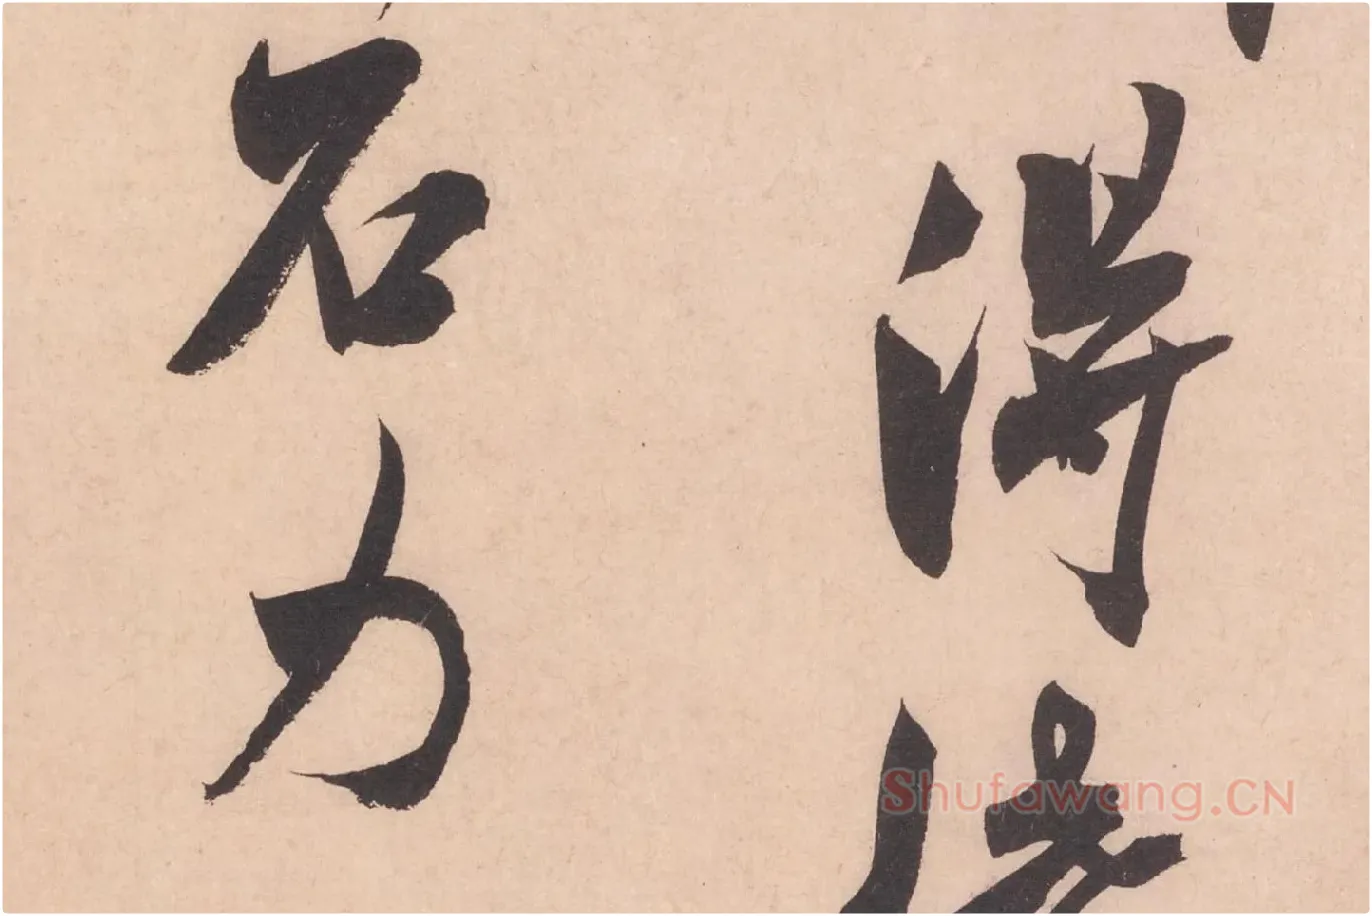 得
石力
Shufawang.CN